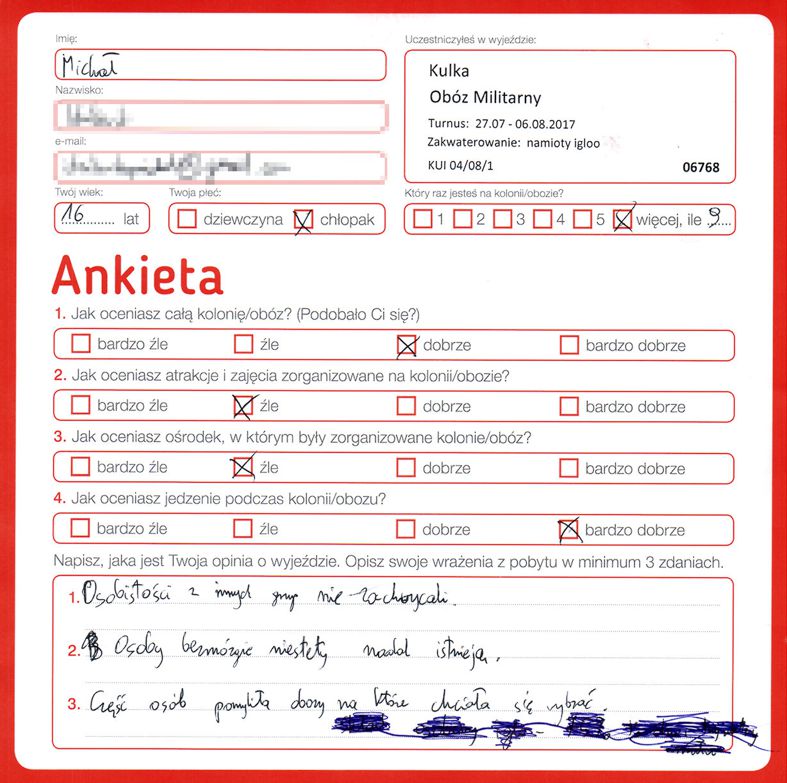 Imię:
Michał
Uczestniczyłeś w wyjeździe:
Kulka
Obóz Militarny
Turnus: 27.07 - 06.08.2017
Zakwaterowanie: namioty igloo
KUI 04/08/1 06768
Nazwisko:
e-mail:
Twój wiek: Twoja płeć: Który raz jesteś na kolonii/obozie?
16 lat dziewczyna chłopak 1 2 3 4 5 więcej, ile 9
Ankieta
1. Jak oceniasz całą kolonię/obóz? (Podobało Ci się?)
bardzo źle źle dobrze bardzo dobrze
2. Jak oceniasz atrakcje i zajęcia zorganizowane na kolonii/obozie?
bardzo źle źle dobrze bardzo dobrze
3. Jak oceniasz ośrodek, w którym były zorganizowane kolonie/obóz?
bardzo źle źle dobrze bardzo dobrze
4. Jak oceniasz jedzenie podczas kolonii/obozu?
bardzo źle źle dobrze bardzo dobrze
Napisz, jaka jest Twoja opinia o wyjeździe. Opisz swoje wrażenia z pobytu w minimum 3 zdaniach.
1. Osobistości z innych grup nie zachwycali.
2. Osoby bezmózgie niestety nadal istnieją.
3. Część osób pomyliła obozy na które chciała się wybrać.